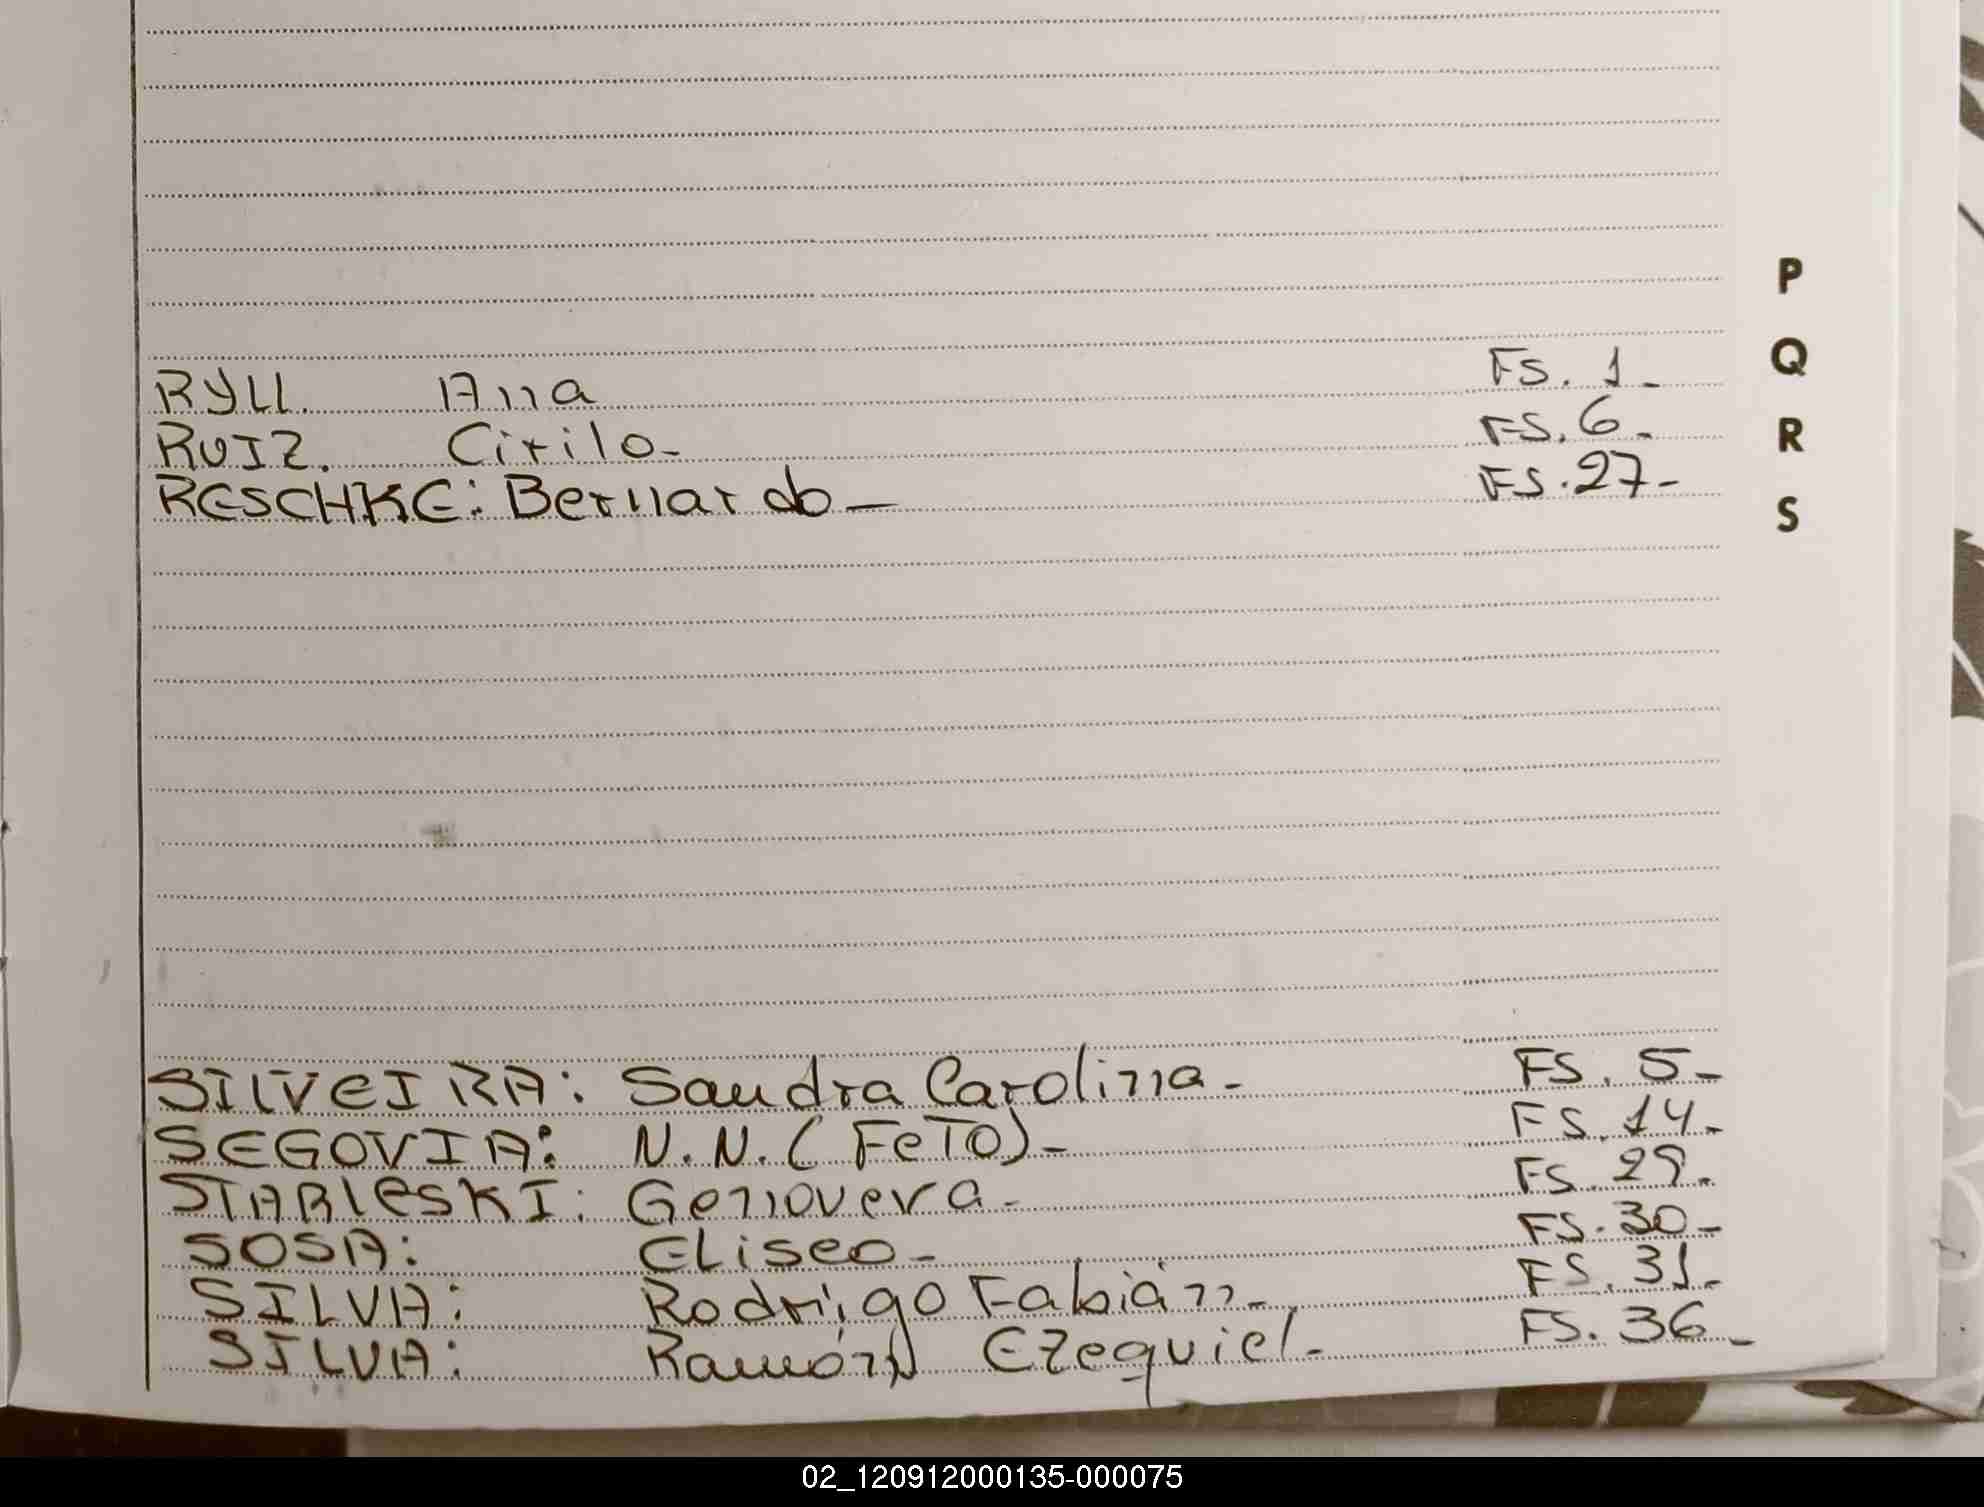 P
Q
RYLL. Anna FS. 1-
RUIZ. Cirilo- FS. 6-
R
RESCHKE: Bernardo- FS. 27-
S
SILVEIRA: Sandra Carolina- FS. 5-
SEGOVIA: N.N. (FeTO)- FS. 14-
STARLESKI: Genoveva- FS. 29-
SOSA: ELiseo- FS. 30-
SILVA: Rodrigo Fabián- FS. 31-
SILVA: Ramón Ezequiel- FS. 36-
02_120912000135-000075